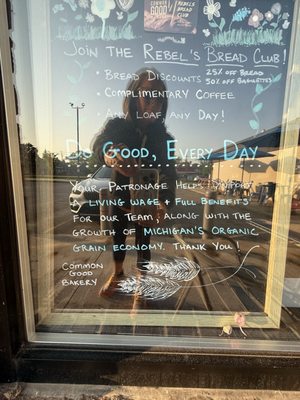 COMMON
GOOD
REBELS
BREAD
CLUB
JOIN THE REBEL'S BREAD CLUB!
• BREAD DISCOUNTS 25% OFF BREAD
50% OFF BAGUETTES
• COMPLIMENTARY COFFEE
• ANY LOAF, ANY DAY!
DO GOOD, EVERY DAY
YOUR PATRONAGE HELPS SUPPORT
A LIVING WAGE + FULL BENEFITS
FOR OUR TEAM; ALONG WITH THE
GROWTH OF MICHIGAN'S ORGANIC
GRAIN ECONOMY. THANK YOU!
COMMON
GOOD
BAKERY